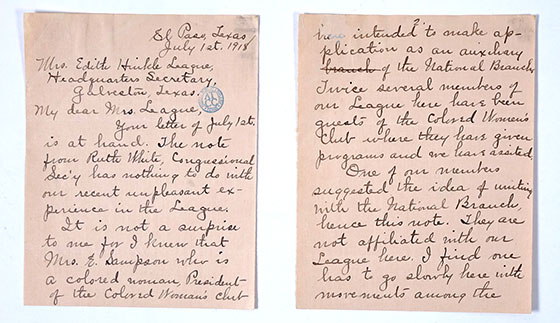 El Paso, Texas
July 1st. 1918
Mrs. Edith Hinkle League,
Headquarters Secretary,
Galveston, Texas.
My dear Mrs. League,
Your letter of July 1st.
is at hand. The note
from Ruth White, Congressional
Sec'y has nothing to do with
our recent unpleasant ex-
perience in the League.
It is not a surprise
to me for I knew that
Mrs. E. Sampson who is
a colored woman, President
of the Colored Woman's club
2
here intended to make ap-
plication as an auxiliary
branch of the National Branch.
Twice several members of
our League here have been
guests of the Colored Women's
Club where they have given
programs and we have assisted.
One of our members
suggested the idea of uniting
with the National Branch,
hence this note. They are
not affiliated with our
League here. I find one
has to go slowly here with
movements among the